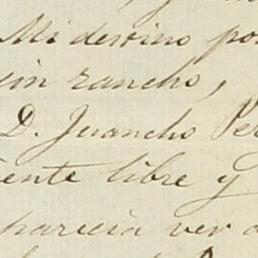 Mi destino por
sin rancho,
D. Juancho Per
iente libre y
parecia ver a